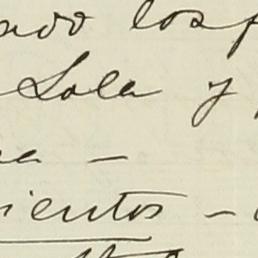 ado los
Lola y
a –
ientos –